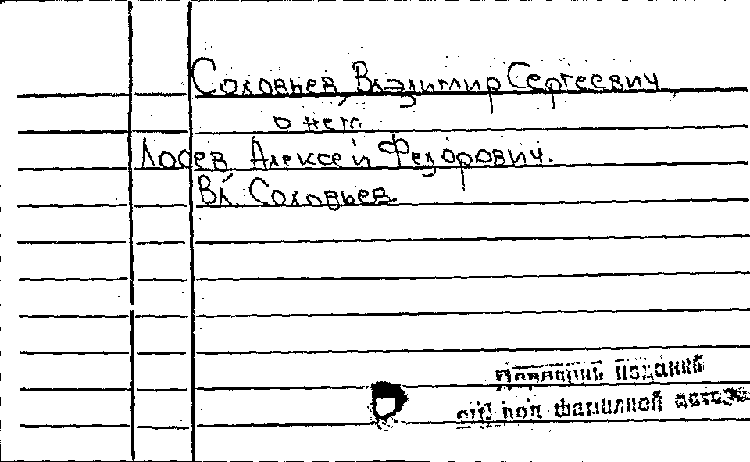 Соловьев, Владимир Сергеевич
о нем
Лосев Алексей Федорович.
Вл. Соловьев.
изданий
под фамилией автора